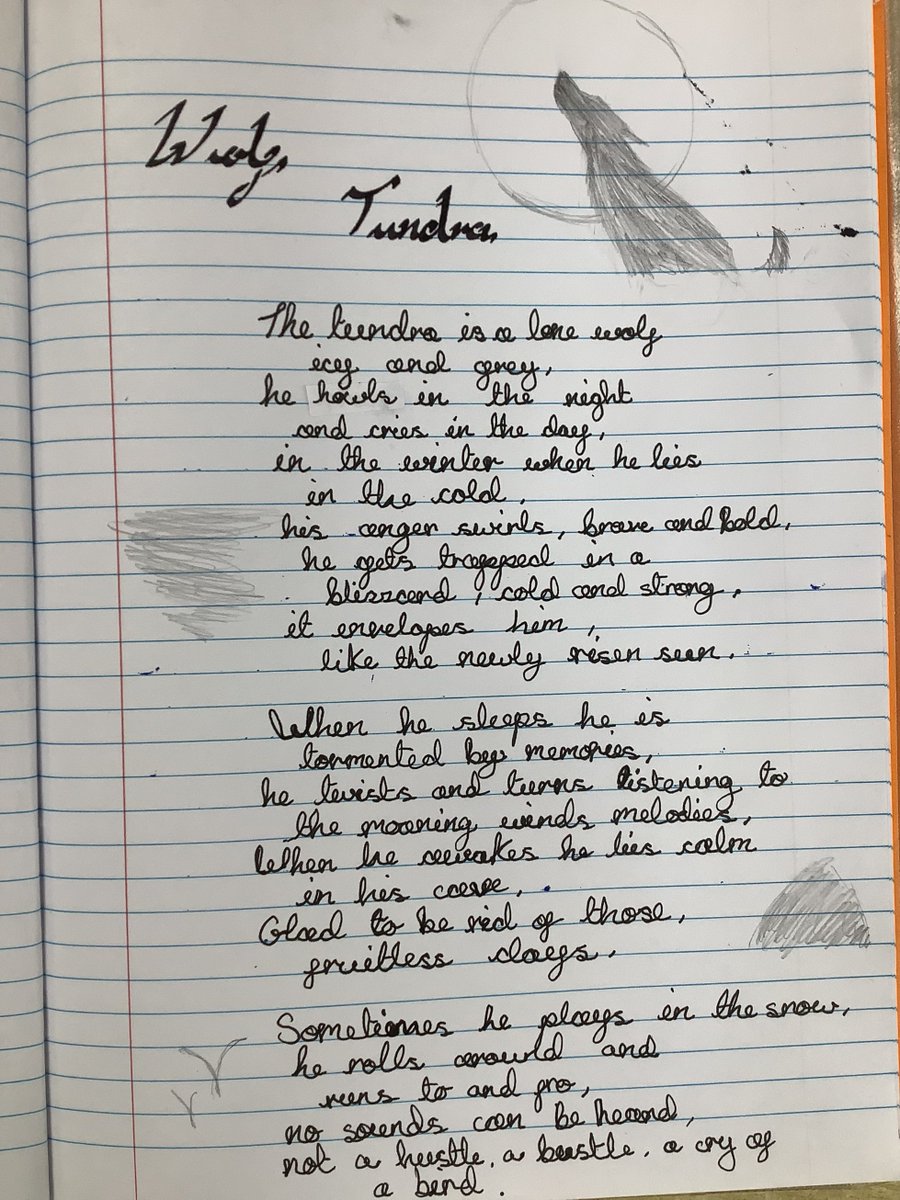 Wolf
Tundra.
The tundra is a lone wolf
icey and grey,
he howls in the night
and cries in the day,
in the winter when he lies
in the cold,
his anger swirls, brave and Bold,
he gets trapped in a
blizzard, cold and strong,
it envelopes him,
like the newly risen sun.
When he sleeps he is
tormented by memories,
he twists and turns listening to
the moaning winds melodies,
When he awakes he lies calm
in his cave,
Glad to be rid of those,
fruitless days.
Sometimes he plays in the snow,
he rolls around and
runs to and fro,
no sounds can be heard,
not a hustle, a bustle, a cry of
a bird.